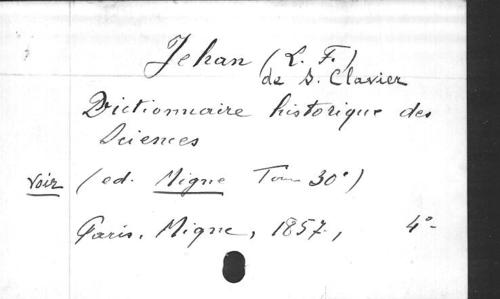 Jehan (L. F.)
de S. Clavier
Dictionnaire historique des
Sciences
voir (ed. Migne Tom 30°)
Paris, Migne, 1857, 4°